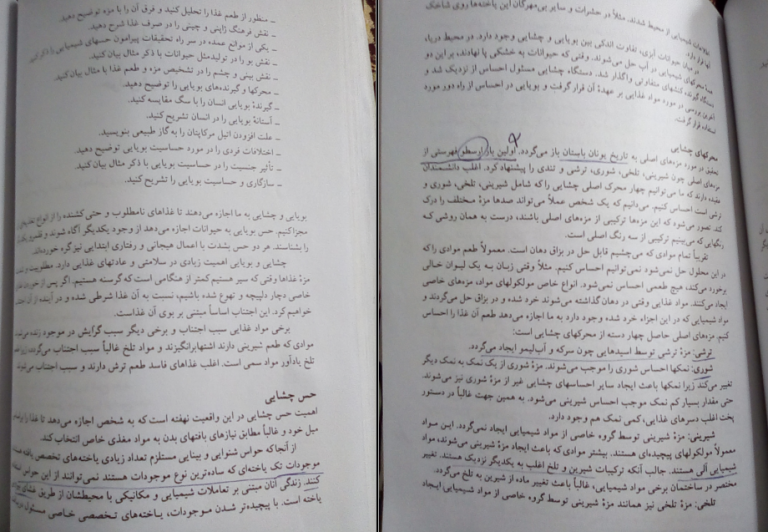 ـ منظور از طعم غذا را تحلیل کنید و فرق آن را با مزه توضیح دهید.
ـ نقش فرهنگ ژاپنی و چینی را در صرف غذا شرح دهید.
ـ یکی از موانع عمده در سر راه تحقیقات پیرامون حسهای شیمیایی را ذکر کنید.
ـ نقش بو را در تولیدمثل حیوانات با ذکر مثال بیان کنید.
ـ نقش بینی و چشم را در تشخیص مزه و طعم غذا با مثال بیان کنید.
ـ محرکها و گیرنده‌های بویایی را توضیح دهید.
ـ گیرندهٔ بویایی انسان را با سگ مقایسه کنید.
ـ آستانهٔ بویایی را در انسان تشریح کنید.
ـ علت افزودن اتیل مرکاپتان را به گاز طبیعی بنویسید.
ـ اختلافات فردی را در مورد حساسیت بویایی توضیح دهید.
ـ تأثیر جنسیت را در حساسیت بویایی با ذکر مثال بیان کنید.
ـ سازگاری و حساسیت بویایی را تشریح کنید.
بویایی و چشایی به ما اجازه می‌دهند تا غذاهای نامطلوب و حتی کشنده را از انواع
مجزا کنیم. حس بویایی به حیوانات اجازه می‌دهد از وجود یکدیگر آگاه شوند و
را بشناسند. هر دو حس بشدت با اعمال هیجانی و رفتاری ابتدایی نیز گره خورده‌اند.
چشایی و بویایی اهمیت زیادی در سلامتی و عادتهای غذایی دارد. مطلوبیت
مزهٔ غذاها وقتی که سیر هستیم کمتر از هنگامی است که گرسنه هستیم. اگر پس از خوردن
خاصی دچار دلپیچه و تهوع شده باشیم، نسبت به آن غذا شرطی شده و در آینده از آن
خواهیم کرد. این اجتناب اساساً مبتنی بر بوی آن غذاست.
برخی مواد غذایی سبب اجتناب و برخی دیگر سبب گرایش در موجود
موادی که طعم شیرینی دارند اشتهابرانگیزند و مواد تلخ غالباً سبب اجتناب می‌گردند
تلخ یادآور مواد سمی است. اغلب غذاهای فاسد طعم ترش دارند و سبب اجتناب
حس چشایی
اهمیت حس چشایی در این واقعیت نهفته است که به شخص اجازه می‌دهد تا غذا را
میل خود و غالباً مطابق نیازهای بافتهای بدن به مواد مغذی خاص انتخاب کند.
از آنجا که حواس شنوایی و بینایی مستلزم تعداد زیادی یاخته‌های تخصص یافته
موجودات تک یاخته‌ای که ساده‌ترین نوع موجودات هستند نمی‌توانند از این حواس
کنند. زندگی آنان مبتنی بر تعاملات شیمیایی و مکانیکی با محیطشان از طریق غشای
یاخته است. با پیچیده‌تر شدن موجودات، یاخته‌های تخصصی خاصی مسئول
شیمیایی از محیط شدند. مثلاً در حشرات و سایر بی‌مهرگان این یاخته‌ها روی شاخک
آنها قرار دارد.
در میان حیوانات آبزی، تفاوت اندکی بین بویایی و چشایی وجود دارد. در محیط دریا،
محرکهای شیمیایی در آب حل می‌شوند. وقتی که حیوانات به خشکی پا نهادند، بر این دو
دستگاه گیرنده کنشهای متفاوتی واگذار شد. دستگاه چشایی مسئول احساس از نزدیک شد و
آخرین بررسی در مورد مواد غذایی بر عهدهٔ آن قرار گرفت و بویایی در احساس از راه دور مورد
استفاده قرار گرفت.
محرکهای چشایی
تحقیق در مورد مزه‌های اصلی به تاریخ یونان باستان باز می‌گردد. اولین بار ارسطو فهرستی از
مزه‌های اصلی چون شیرینی، تلخی، شوری، ترشی و تندی را پیشنهاد کرد. اغلب دانشمندان
عقیده دارند که ما می‌توانیم چهار محرک اصلی چشایی را که شامل شیرینی، تلخی، شوری و
ترشی است احساس کنیم. می‌دانیم که یک شخص عملاً می‌تواند صدها مزهٔ مختلف را درک
کند. تصور می‌شود که این مزه‌ها ترکیبی از مزه‌های اصلی باشند، درست به همان روشی که
رنگهایی که می‌بینیم ترکیبی از سه رنگ اصلی است.
تقریباً تمام موادی که می‌چشیم قابل حل در بزاق دهان است. معمولاً طعم موادی را که
در این محلول حل نمی‌شود نمی‌توانیم احساس کنیم. مثلاً وقتی زبان به یک لیوان خالی
برخورد می‌کند، هیچ طعمی احساس نمی‌شود. انواع خاص مولکولهای مواد، مزه‌های خاصی
ایجاد می‌کنند. مواد غذایی وقتی در دهان گذاشته می‌شوند خرد شده و در بزاق حل می‌گردند و
مواد شیمیایی که در این اجزاء خرد شده وجود دارد به ما اجازه می‌دهد طعم آن غذا را احساس
کنیم. مزه‌های اصلی حاصل چهار دسته از محرکهای چشایی است:
ترشی: مزهٔ ترشی توسط اسیدهایی چون سرکه و آب‌لیمو ایجاد می‌گردد.
شوری: نمکها احساس شوری را موجب می‌شوند. مزهٔ شوری از یک نمک به نمک دیگر
تغییر می‌کند زیرا نمکها باعث ایجاد سایر احساسهای چشایی غیر از مزهٔ شوری نیز می‌شوند.
حتی مقدار بسیار کم نمک موجب احساس شیرینی می‌شود. به همین جهت غالباً در دستور
پخت اغلب دسرهای غذایی، کمی نمک هم وجود دارد.
شیرینی: مزهٔ شیرینی توسط گروه خاصی از مواد شیمیایی ایجاد نمی‌گردد. این مواد
معمولاً مولکولهای پیچیده‌ای هستند. بیشتر موادی که باعث ایجاد مزهٔ شیرینی می‌شوند، مواد
شیمیایی آلی هستند. جالب آنکه ترکیبات شیرین و تلخ اغلب به یکدیگر نزدیک هستند. تغییر
مختصر در ساختمان برخی مواد شیمیایی، غالباً باعث تغییر ماده از شیرین به تلخ می‌گردد.
تلخی: مزهٔ تلخی نیز همانند مزهٔ شیرینی توسط گروه خاصی از مواد شیمیایی ایجاد